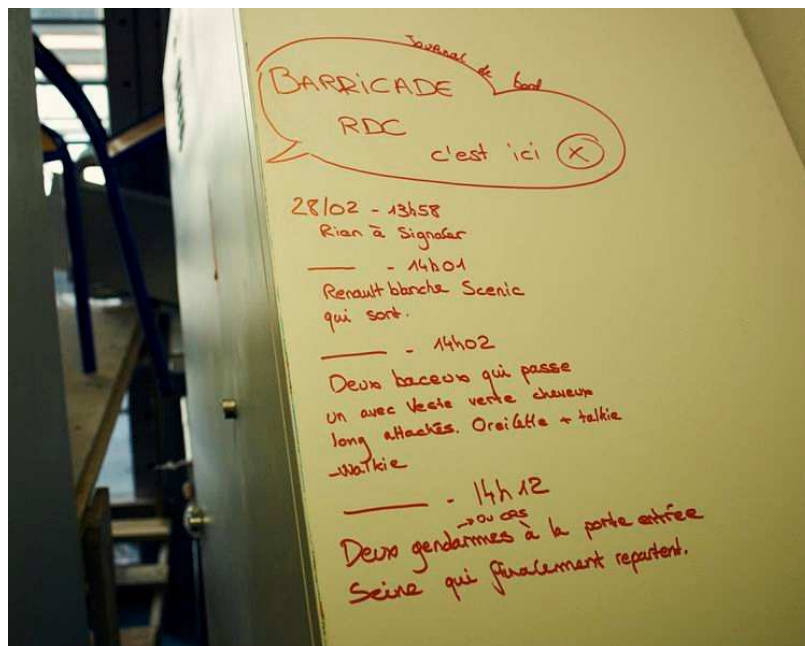 Journal de bord
BARRICADE
RDC
c'est ici X
28/02 - 13h58
Rien à Signaler
—— - 14h01
Renault blanche Scenic
qui sort.
—— - 14h02
Deux baceux qui passe
un avec Veste verte cheveux
long attachés. Oreillette + talkie
-Walkie
—— - 14h12
→ ou CRS
Deux gendarmes à la porte entrée
Seine qui finalement repartent.